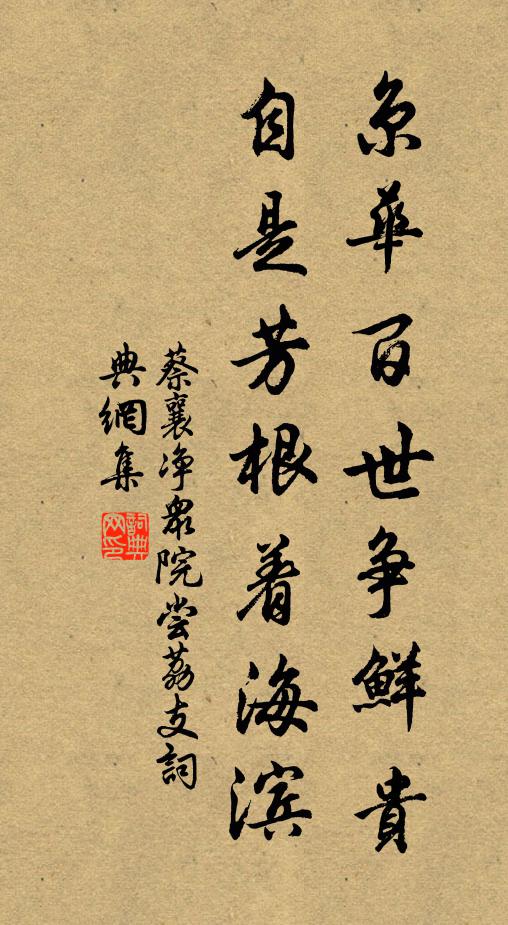 京華百世争鮮貴
自是芳根着海滨
蔡襄净衆院尝荔支詞
典網集
詞典網印